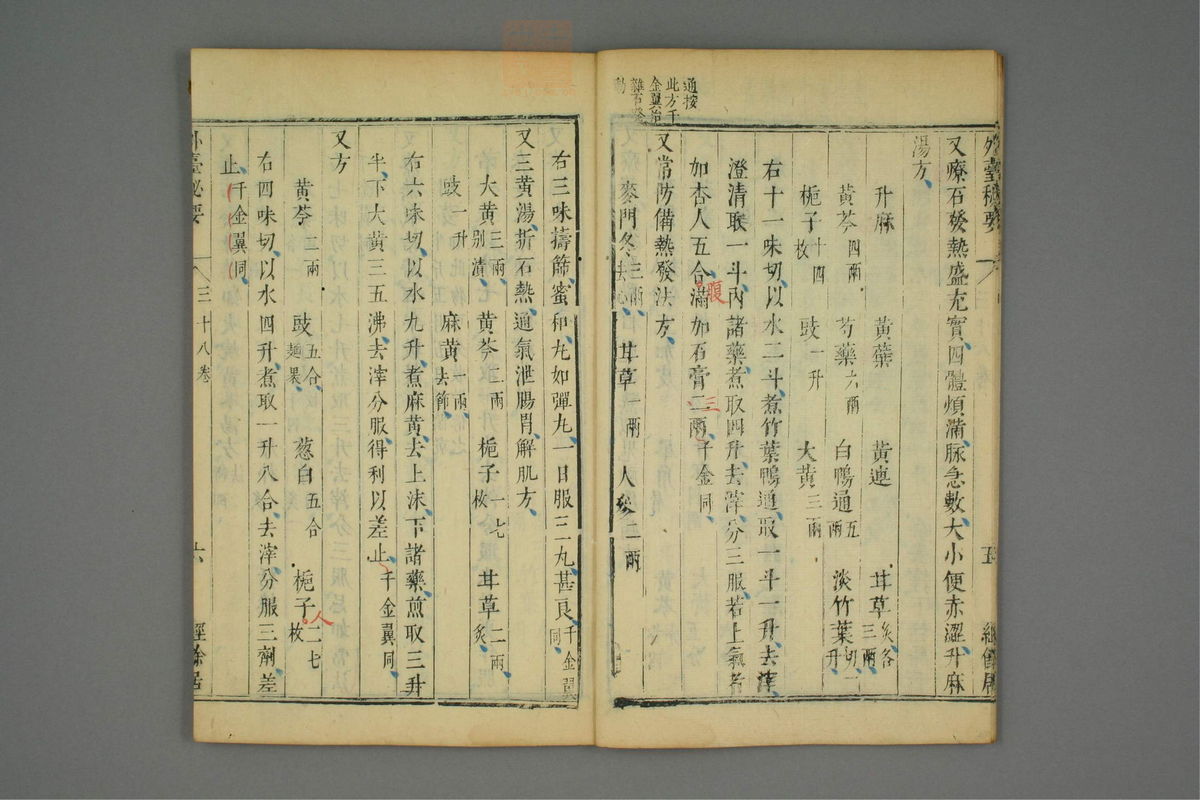 通按
此方千
金翼治
雜石發
動
又療石發熱盛充實四體煩滿脉急數大小便赤澀升麻
湯方
升麻 黃蘗 黃連 甘草炙各三兩
黃芩四兩 芍藥六兩 白鴨通五兩 淡竹葉切一升
梔子十四枚 豉一升 大黃三兩
右十一味切以水二斗煮竹葉鴨通取一斗一升去滓
澄清取一斗內諸藥煮取四升去滓分三服若上氣者
如杏人五合滿加石膏二兩千金同
腹
三
又常防備熱發法方
麥門冬三兩去心 甘草一兩 人參二兩
右三味擣篩蜜和丸如彈丸一日服三丸甚良千金翼同
又三黃湯折石熱通氣泄腸胃解肌方
大黃三兩別漬 黃芩二兩 梔子一七枚 甘草二兩炙
豉一升 麻黃一兩去節
右六味切以水九升煮麻黃去上沫下諸藥煎取三升
半下大黃三五沸去滓分服得利以差止千金翼同
又方
黃芩二兩 豉五合麵裹 葱白五合 梔子二七枚
人
右四味切以水四升煮取一升八合去滓分服三劑差
止千金翼同
外臺秘要
三十八卷
六
經餘居